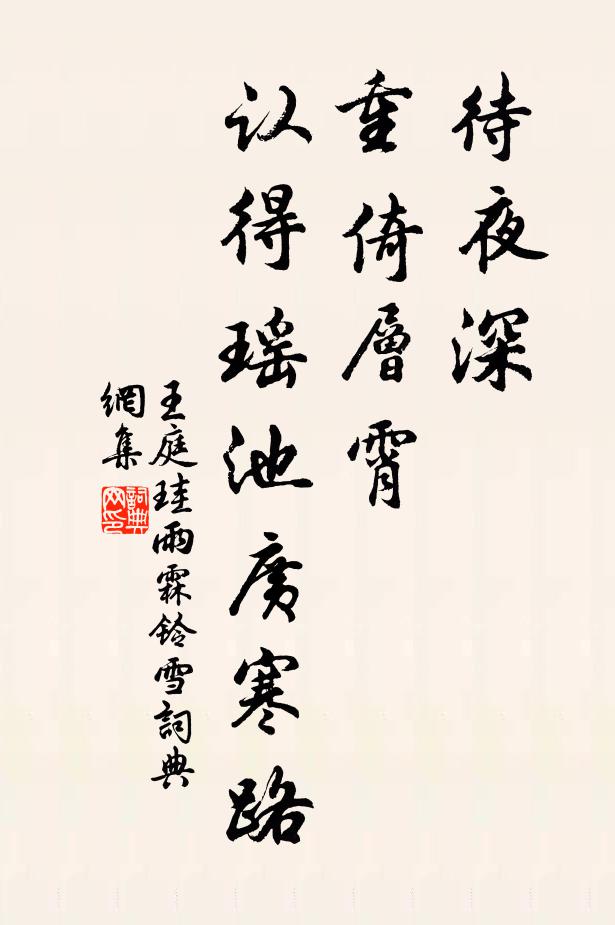 待夜深
重倚層霄
认得瑶池廣寒路
王庭珪雨霖鈴雪詞典
網集
詞典
网印